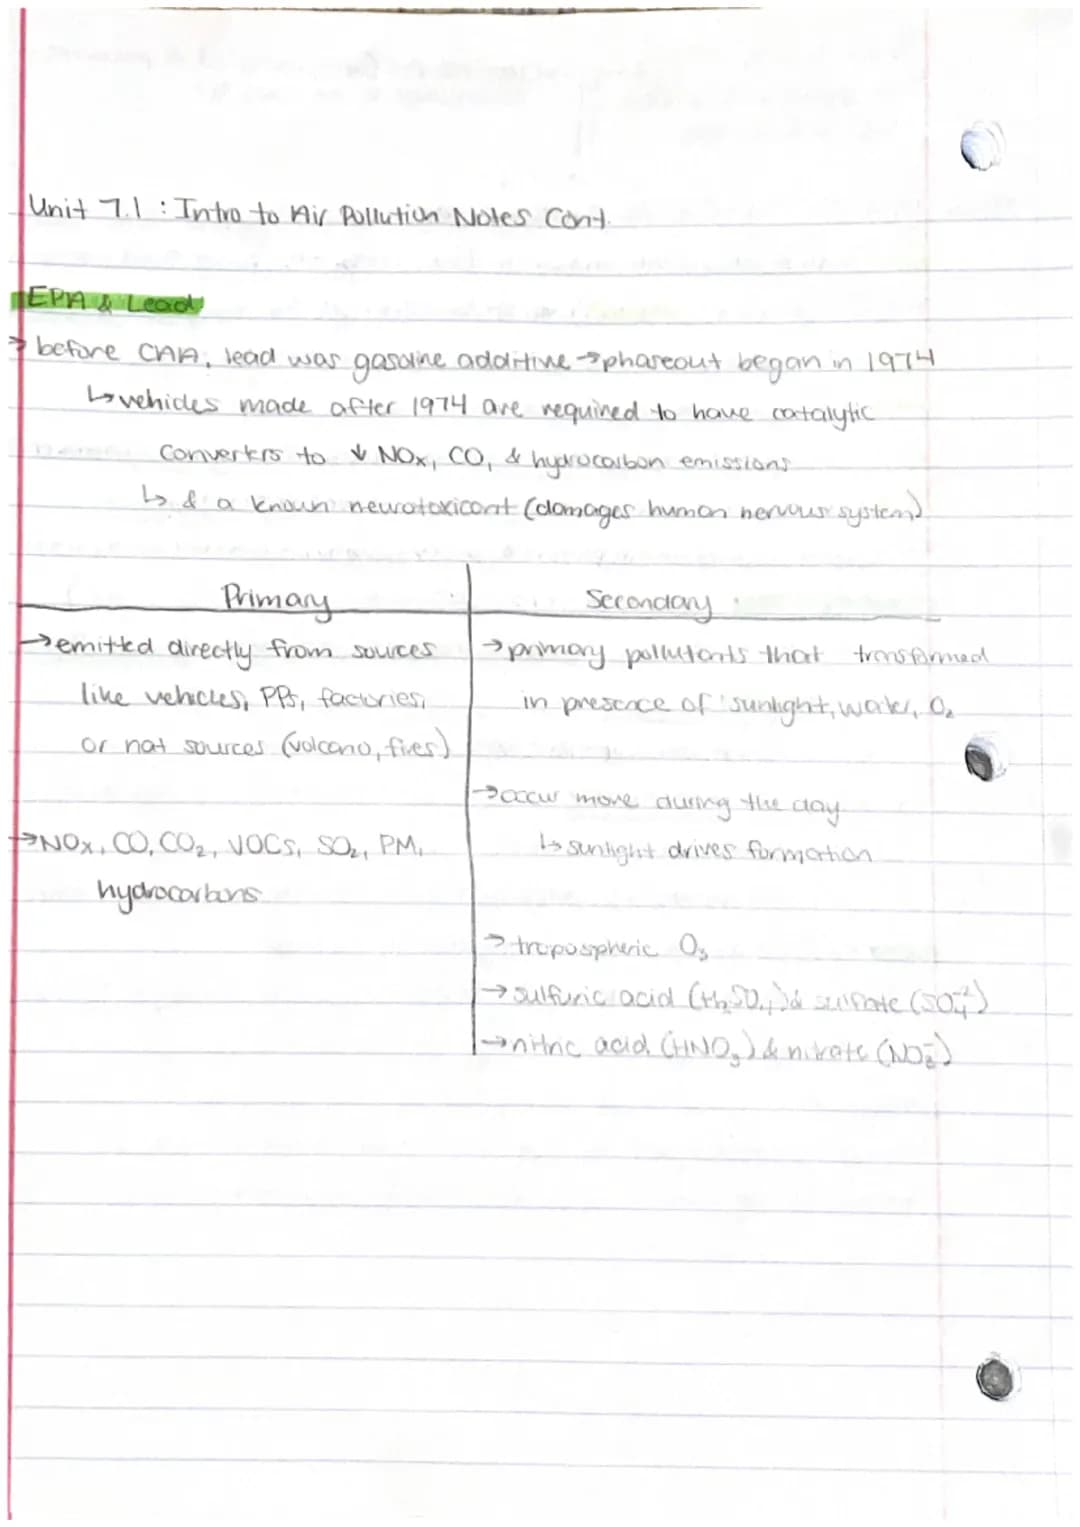 Unit 7.1 : Intro to Air Pollution Notes Cont.
EPA & Lead
→ before CAA, lead was gasoline additive → phaseout began in 1974
↳ vehicles made after 1974 are required to have catalytic
converters to ↓ NOx, CO, & hydrocarbon emissions
↳ & a known neurotoxicant (damages human nervous system)
Primary
→ emitted directly from sources
like vehicles, PPs, factories,
or nat sources (volcano, fires)
→ NOx, CO, CO₂, VOCs, SO₂, PM,
hydrocarbons
Secondary
→ primary pollutants that transformed
in presence of sunlight, water, O₂
→ occur more during the day
↳ sunlight drives formation
→ tropospheric O₃
→ sulfuric acid (H₂SO₄) & sulfate (SO₄⁻²)
→ nitric acid (HNO₃) & nitrate (NO₃⁻)